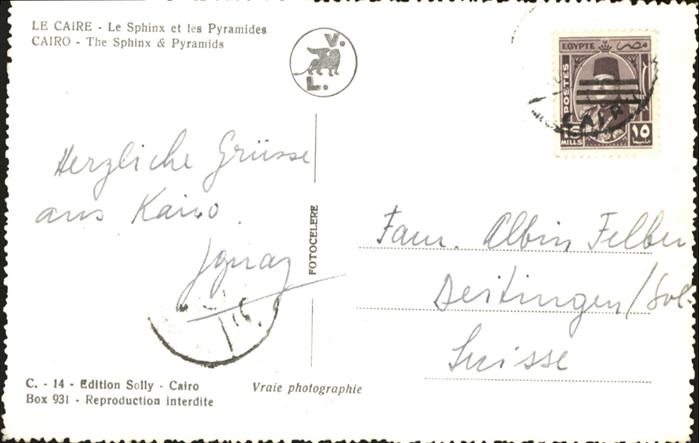 LE CAIRE - Le Sphinx et les Pyramides
CAIRO - The Sphinx & Pyramids
V.
L.
EGYPTE مصر
POSTES
١٥
MILLS
CAIRO
Herzliche Grüsse
aus Kairo.
Ignaz
FOTOCELERE
Fam. Albin Felber
Deitingen/Sol.
Suisse
C. - 14 - Edition Solly - Cairo
Box 931 - Reproduction interdite
Vraie photographie